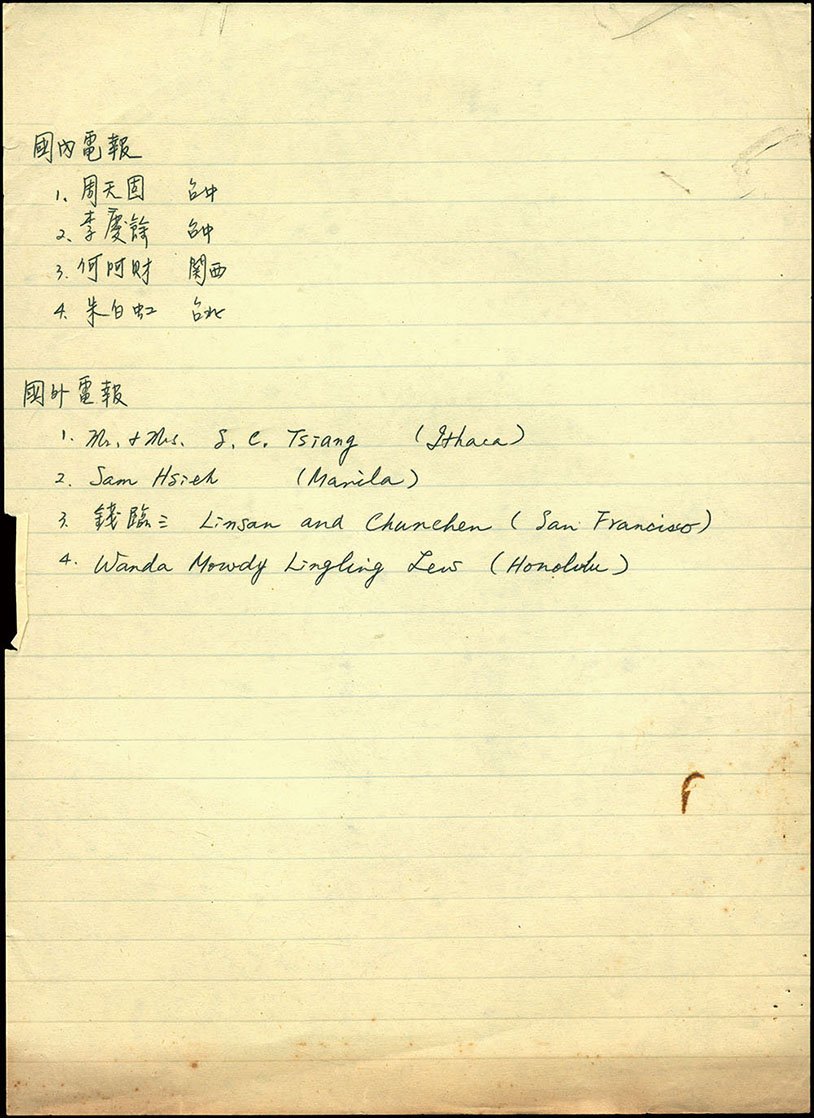 國內電報
1. 周天固 台中
2. 李慶餘 台中
3. 何阿財 関西
4. 朱白虹 台北
國外電報
1. Mr. & Mrs. S. C. Tsiang (Ithaca)
2. Sam Hsieh (Manila)
3. 錢臨三 Linsan and Chunchen (San Francisco)
4. Wanda Mowdy Lingling Lew (Honolulu)